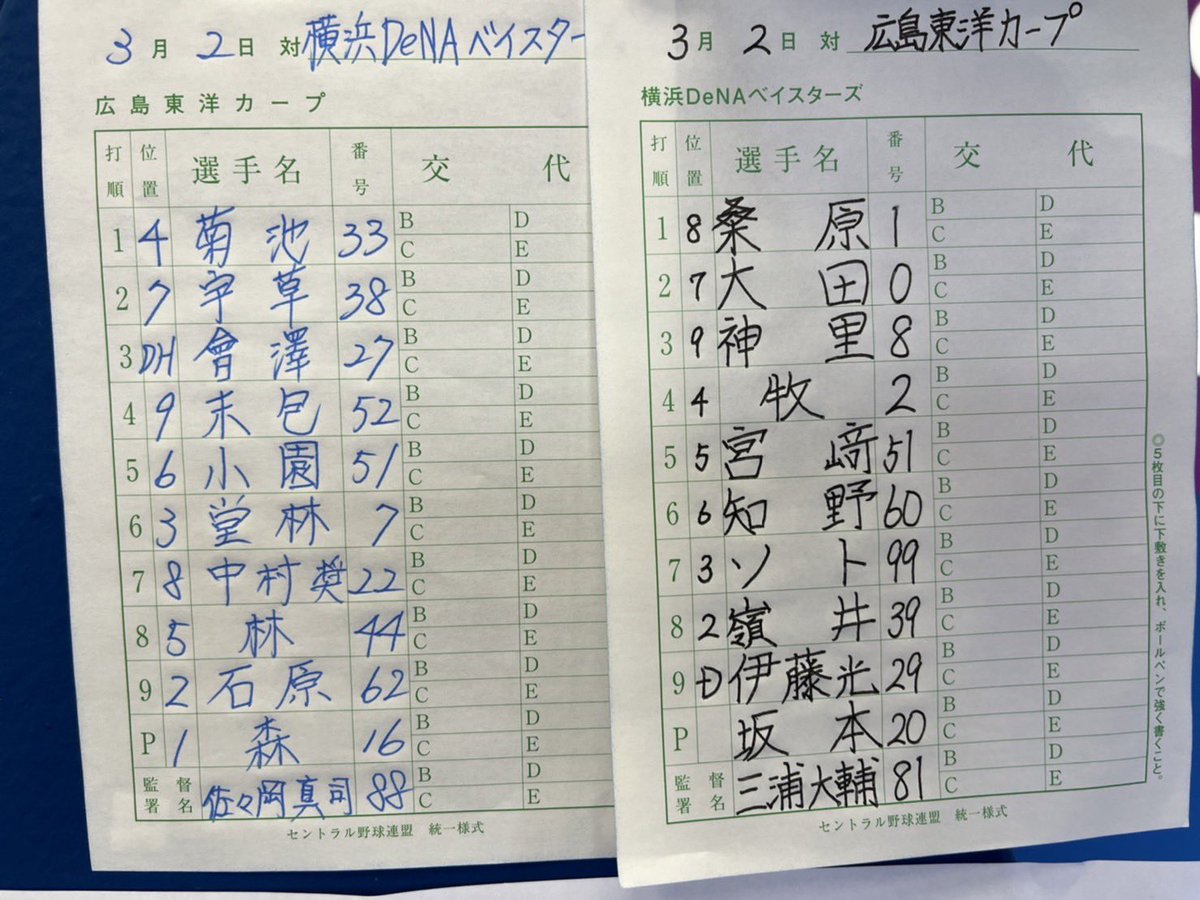 3月 2日 対 横浜DeNAベイスター
広島東洋カープ
打順 位置 選手名 番号 交代
1 4 菊池 33 B D C E
2 7 宇草 38 B D C E
3 DH 會澤 27 B D C E
4 9 末包 52 B D C E
5 6 小園 51 B D C E
6 3 堂林 7 B D C E
7 8 中村奨 22 B D C E
8 5 林 44 B D C E
9 2 石原 62 B D C E
P 1 森 16 B D C E
監督署名 佐々岡真司 88 B D C E
セントラル野球連盟 統一様式
3月 2日 対 広島東洋カープ
横浜DeNAベイスターズ
打順 位置 選手名 番号 交代
1 8 桑原 1 B D C E
2 7 大田 0 B D C E
3 9 神里 8 B D C E
4 4 牧 2 B D C E
5 5 宮﨑 51 B D C E
6 6 知野 60 B D C E
7 3 ソト 99 B D C E
8 2 嶺井 39 B D C E
9 D 伊藤光 29 B D C E
P 坂本 20 B D C E
監督署名 三浦大輔 81 B D C E
セントラル野球連盟 統一様式
◎5枚目の下に下敷きを入れ、ボールペンで強く書くこと。